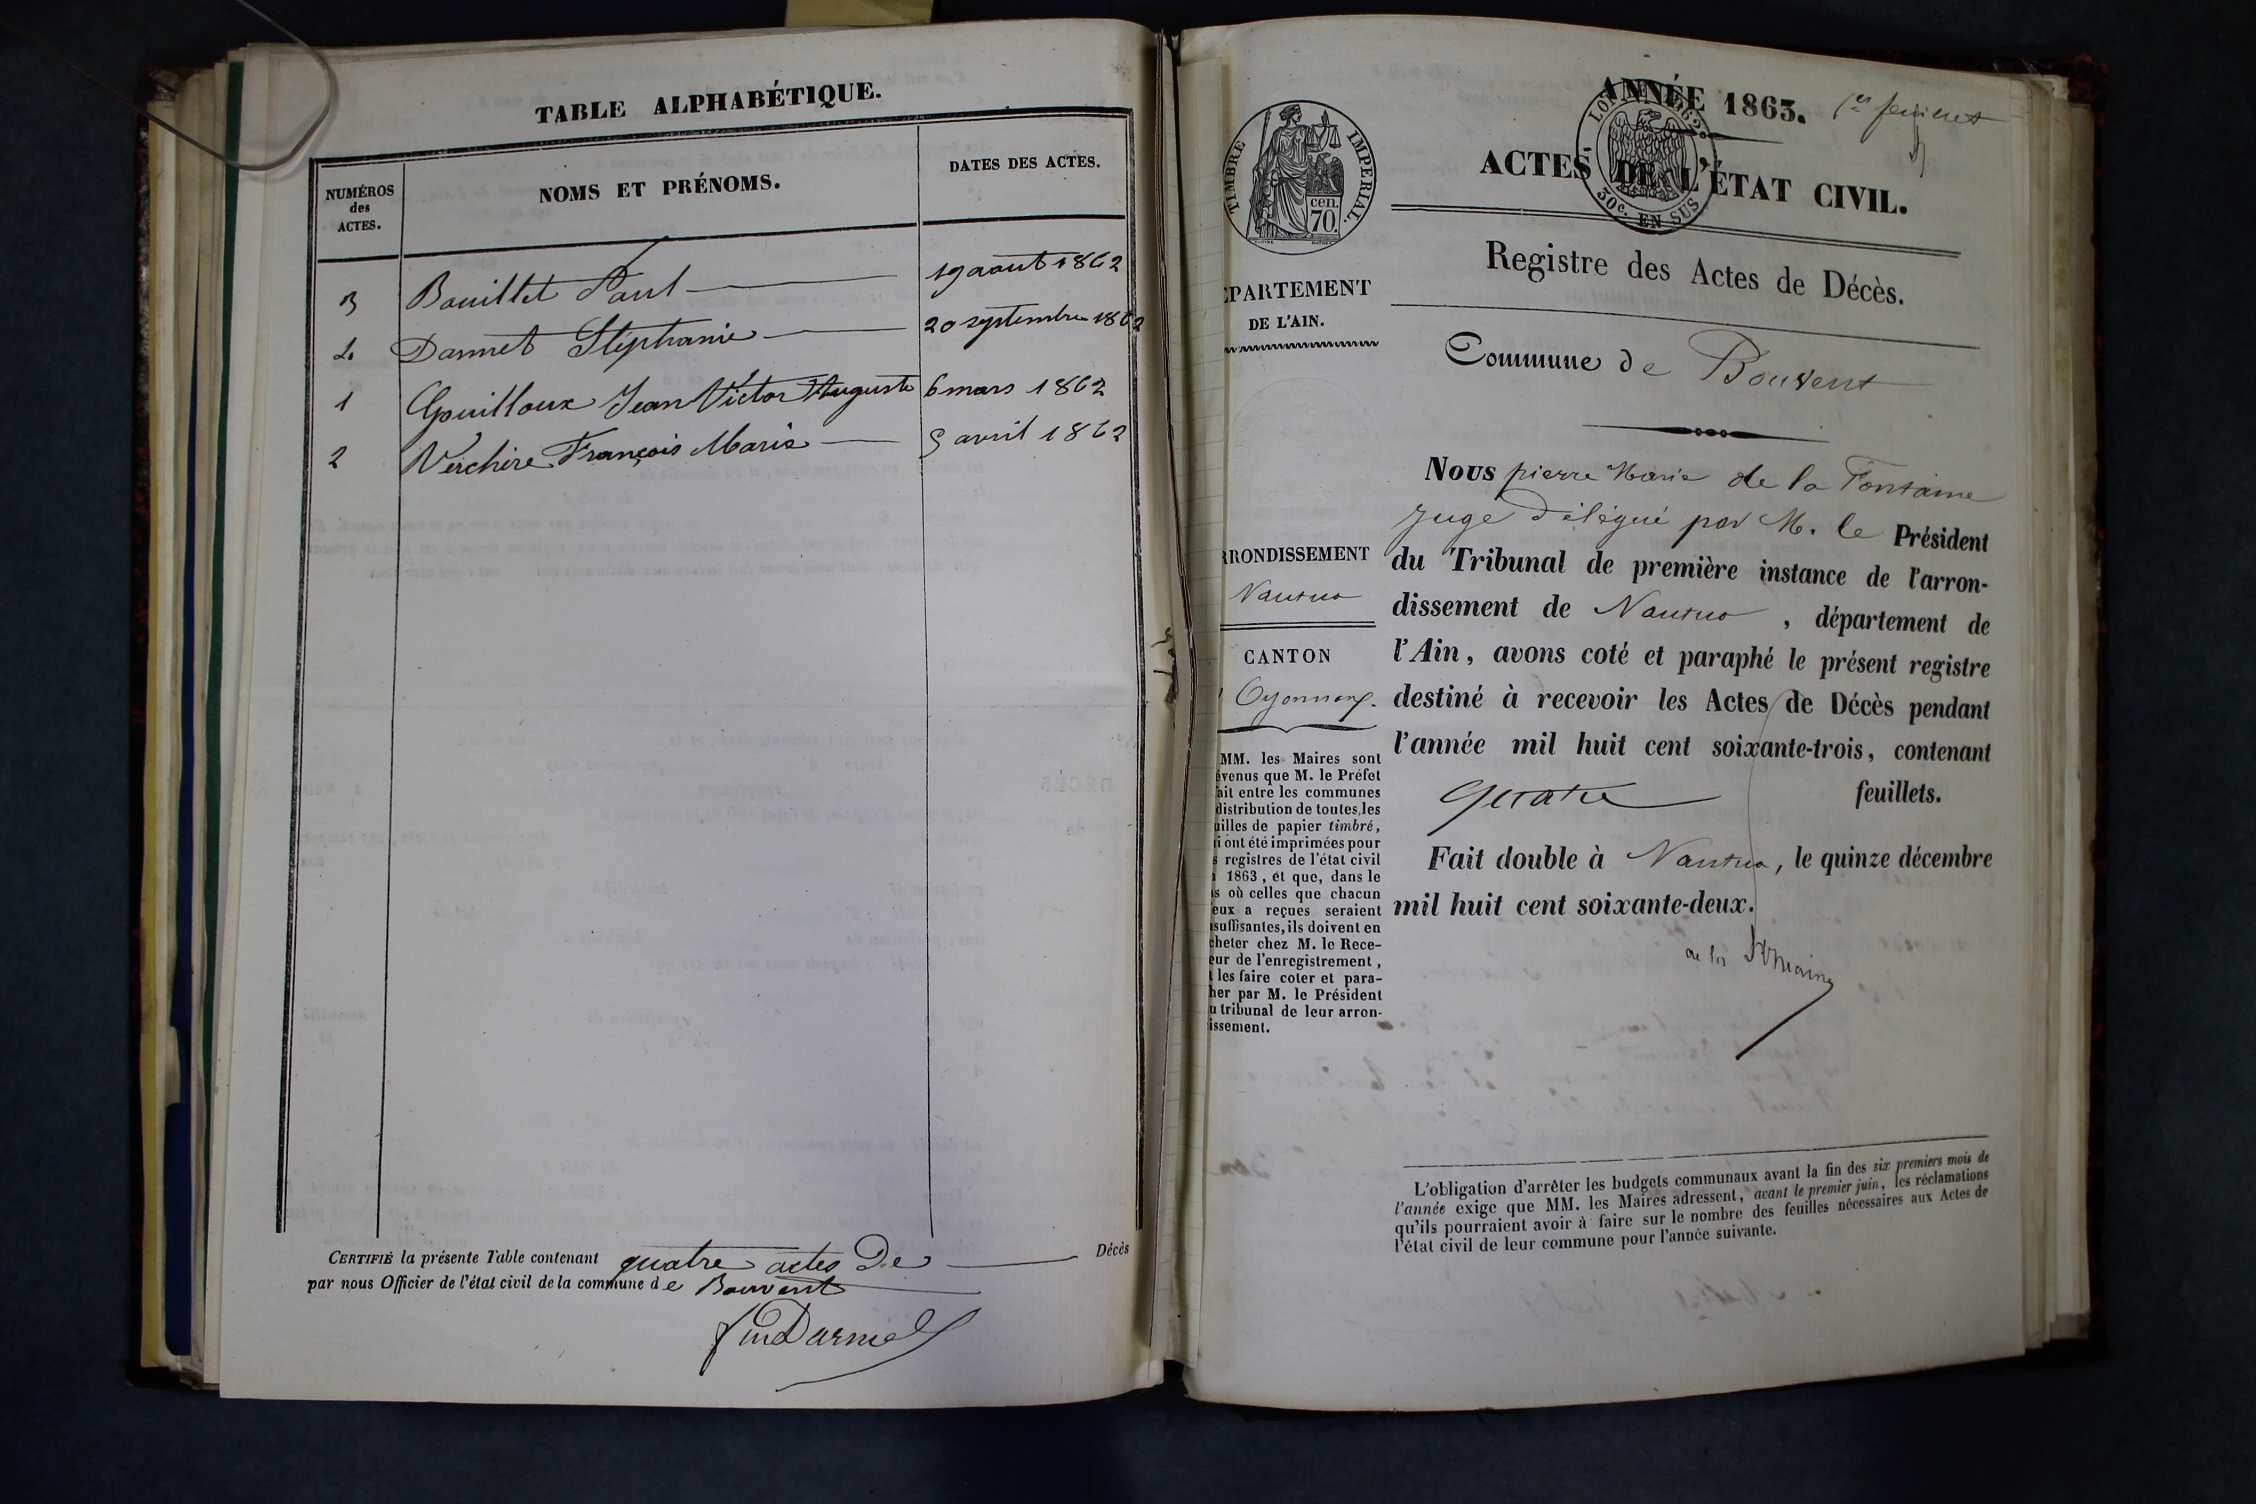 TABLE ALPHABÉTIQUE.
NUMÉROS
des
ACTES.
NOMS ET PRÉNOMS.
DATES DES ACTES.
3 Bouillet Paul 19 aout 1862
4 Dannet Stéphanie 20 septembre 1862
1 Gouilloux Jean Victor Auguste 6 mars 1862
2 Verchère François Marie 5 avril 1862
CERTIFIÉ la présente Table contenant quatre actes De Décès
par nous Officier de l'état civil de la commune de Bouvent
ANNÉE 1863. 1er feuillet
TIMBRE IMPERIAL.
cen.
70.
LOI 1862
30c. EN SUS
ACTES DE L'ÉTAT CIVIL.
Registre des Actes de Décès.
ÉPARTEMENT
DE L'AIN.
Commune de Bouvent
RRONDISSEMENT
Nantua
CANTON
Oyonnax.
MM. les Maires sont
évenus que M. le Préfet
fait entre les communes
distribution de toutes les
uilles de papier timbré,
i ont été imprimées pour
s registres de l'état civil
1863, et que, dans le
s où celles que chacun
eux a reçues seraient
suffisantes, ils doivent en
cheter chez M. le Rece-
eur de l'enregistrement,
t les faire coter et para-
her par M. le Président
u tribunal de leur arron-
issement.
Nous pierre Marie de la Fontaine
Juge Délégué par M. le Président
du Tribunal de première instance de l'arron-
dissement de Nantua, département de
l'Ain, avons coté et paraphé le présent registre
destiné à recevoir les Actes de Décès pendant
l'année mil huit cent soixante-trois, contenant
Quatre feuillets.
Fait double à Nantua, le quinze décembre
mil huit cent soixante-deux.
de la Fontaine
L'obligation d'arrêter les budgets communaux avant la fin des six premiers mois de
l'année exige que MM. les Maires adressent, avant le premier juin, les réclamations
qu'ils pourraient avoir à faire sur le nombre des feuilles nécessaires aux Actes de
l'état civil de leur commune pour l'année suivante.